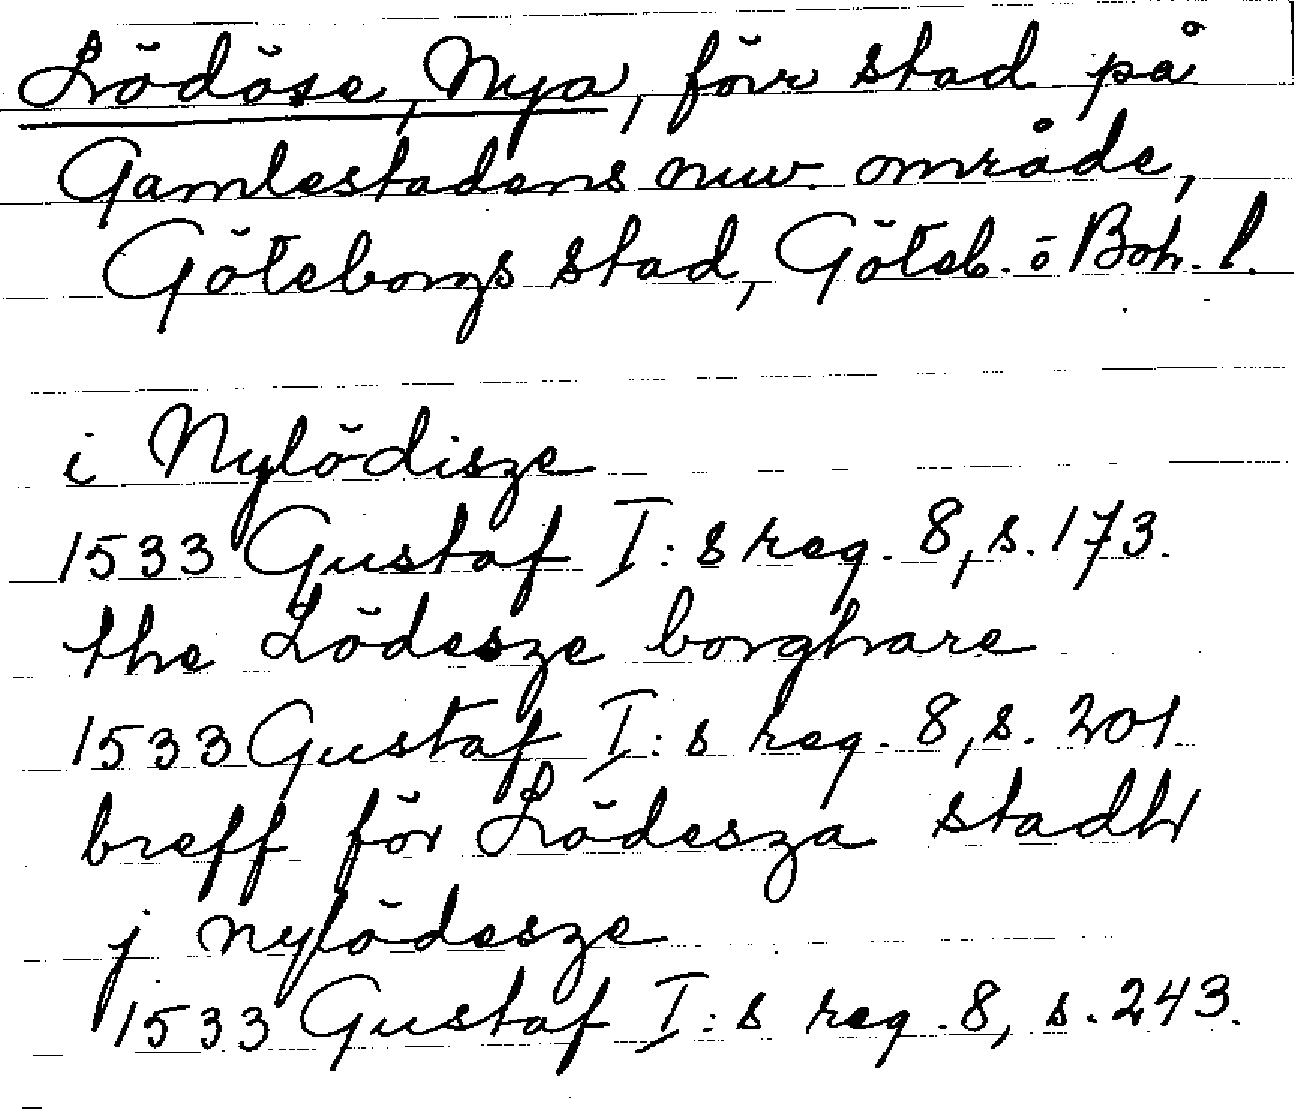 Lödöse, Nya, förr stad på
Gamlestadens nuv. område,
Göteborgs stad, Göteb. o Boh. l.
i Nylödisze
1533 Gustaf I:s reg. 8, s. 173.
the Lödesze borghare
1533 Gustaf I:s reg. 8, s. 201
breff för Lödesza stadh
j nylödesze
1533 Gustaf I:s reg. 8, s. 243.